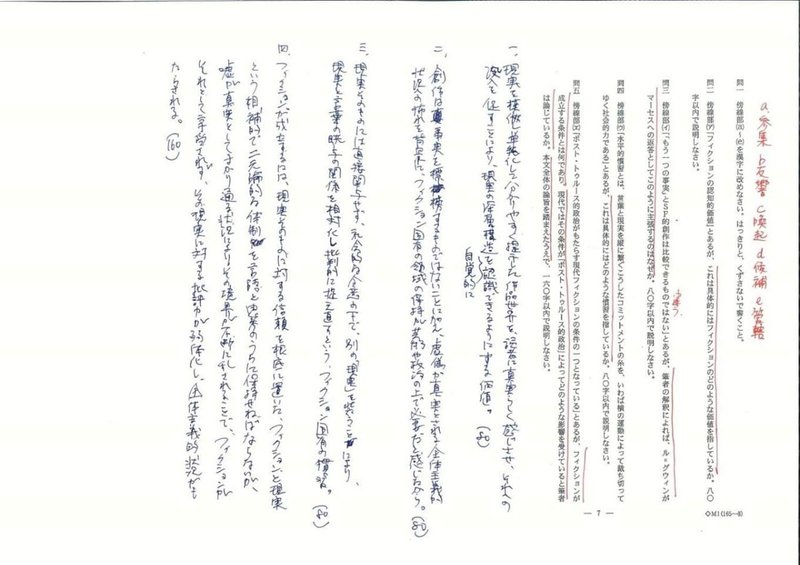 a参集 b反響 c喚起 d候補 e管轄
問一 傍線部(a)～(e)を漢字に改めなさい。はっきりと、くずさないで書くこと。
問二 傍線部(ア)「フィクションの認知的価値」とあるが、これは具体的にはフィクションのどのような価値を指しているか。八〇
字以内で説明しなさい。
問三 傍線部(イ)「「もう一つの事実」とSF的創作は比較できるものではない」とあるが、筆者の解釈によれば、ル＝グウィンが
マーセスへの返答としてこのように主張するのはなぜか。八〇字以内で説明しなさい。
問四 傍線部(ウ)「水平的慣習とは、言葉と現実を縦に繋ぐこうしたコミットメントの糸を、いわば横の運動によって裁ち切って
ゆく社会的力である」とあるが、これは具体的にはどのような慣習を指しているか。八〇字以内で説明しなさい。
問五 傍線部(エ)「ポスト・トゥルース的政治がもたらす現代フィクションの条件の一つとなっている」とあるが、フィクションが
成立する条件とは何であり、現代ではその条件が「ポスト・トゥルース的政治」によってどのような影響を受けていると筆者
は論じているか。本文全体の論旨を踏まえたうえで、一六〇字以内で説明しなさい。
— 7 —
◇M1(165—8)
一、現実を模倣し単純化して分かりやすく提示した作品世界を、読者に真実らしく感じさせ、それへの
没入を促すことにより、現実の深層構造を自覚的に認識できるようにする価値。(80)
二、創作は事実を標榜するものではないことに加え、虚偽が真実とされる全体主義的
状況の怖れを背景に、フィクション固有の領域の保持が芸術や政治の上で必要だと感じるから。(80)
三、現実そのものには直接関与せず、社会的な合意の下で、別の「現実」を装うことにより、
現実と言葉の既与の関係を相対化し批判的に捉え直すという、フィクション固有の慣習。(80)
四、フィクションが成立するには、現実そのものに対する信頼を根底に置いた、フィクションと現実
という相補的で二元論的な体制を言語と由来のうちに保持せねばならないが、
嘘が真実としてまかり通る状況によりその境界が不断に乱されることで、フィクションが
それとして享受されず、その現実に対する批評力が弱体化し、全体主義的状況がも
たらされる。(160)